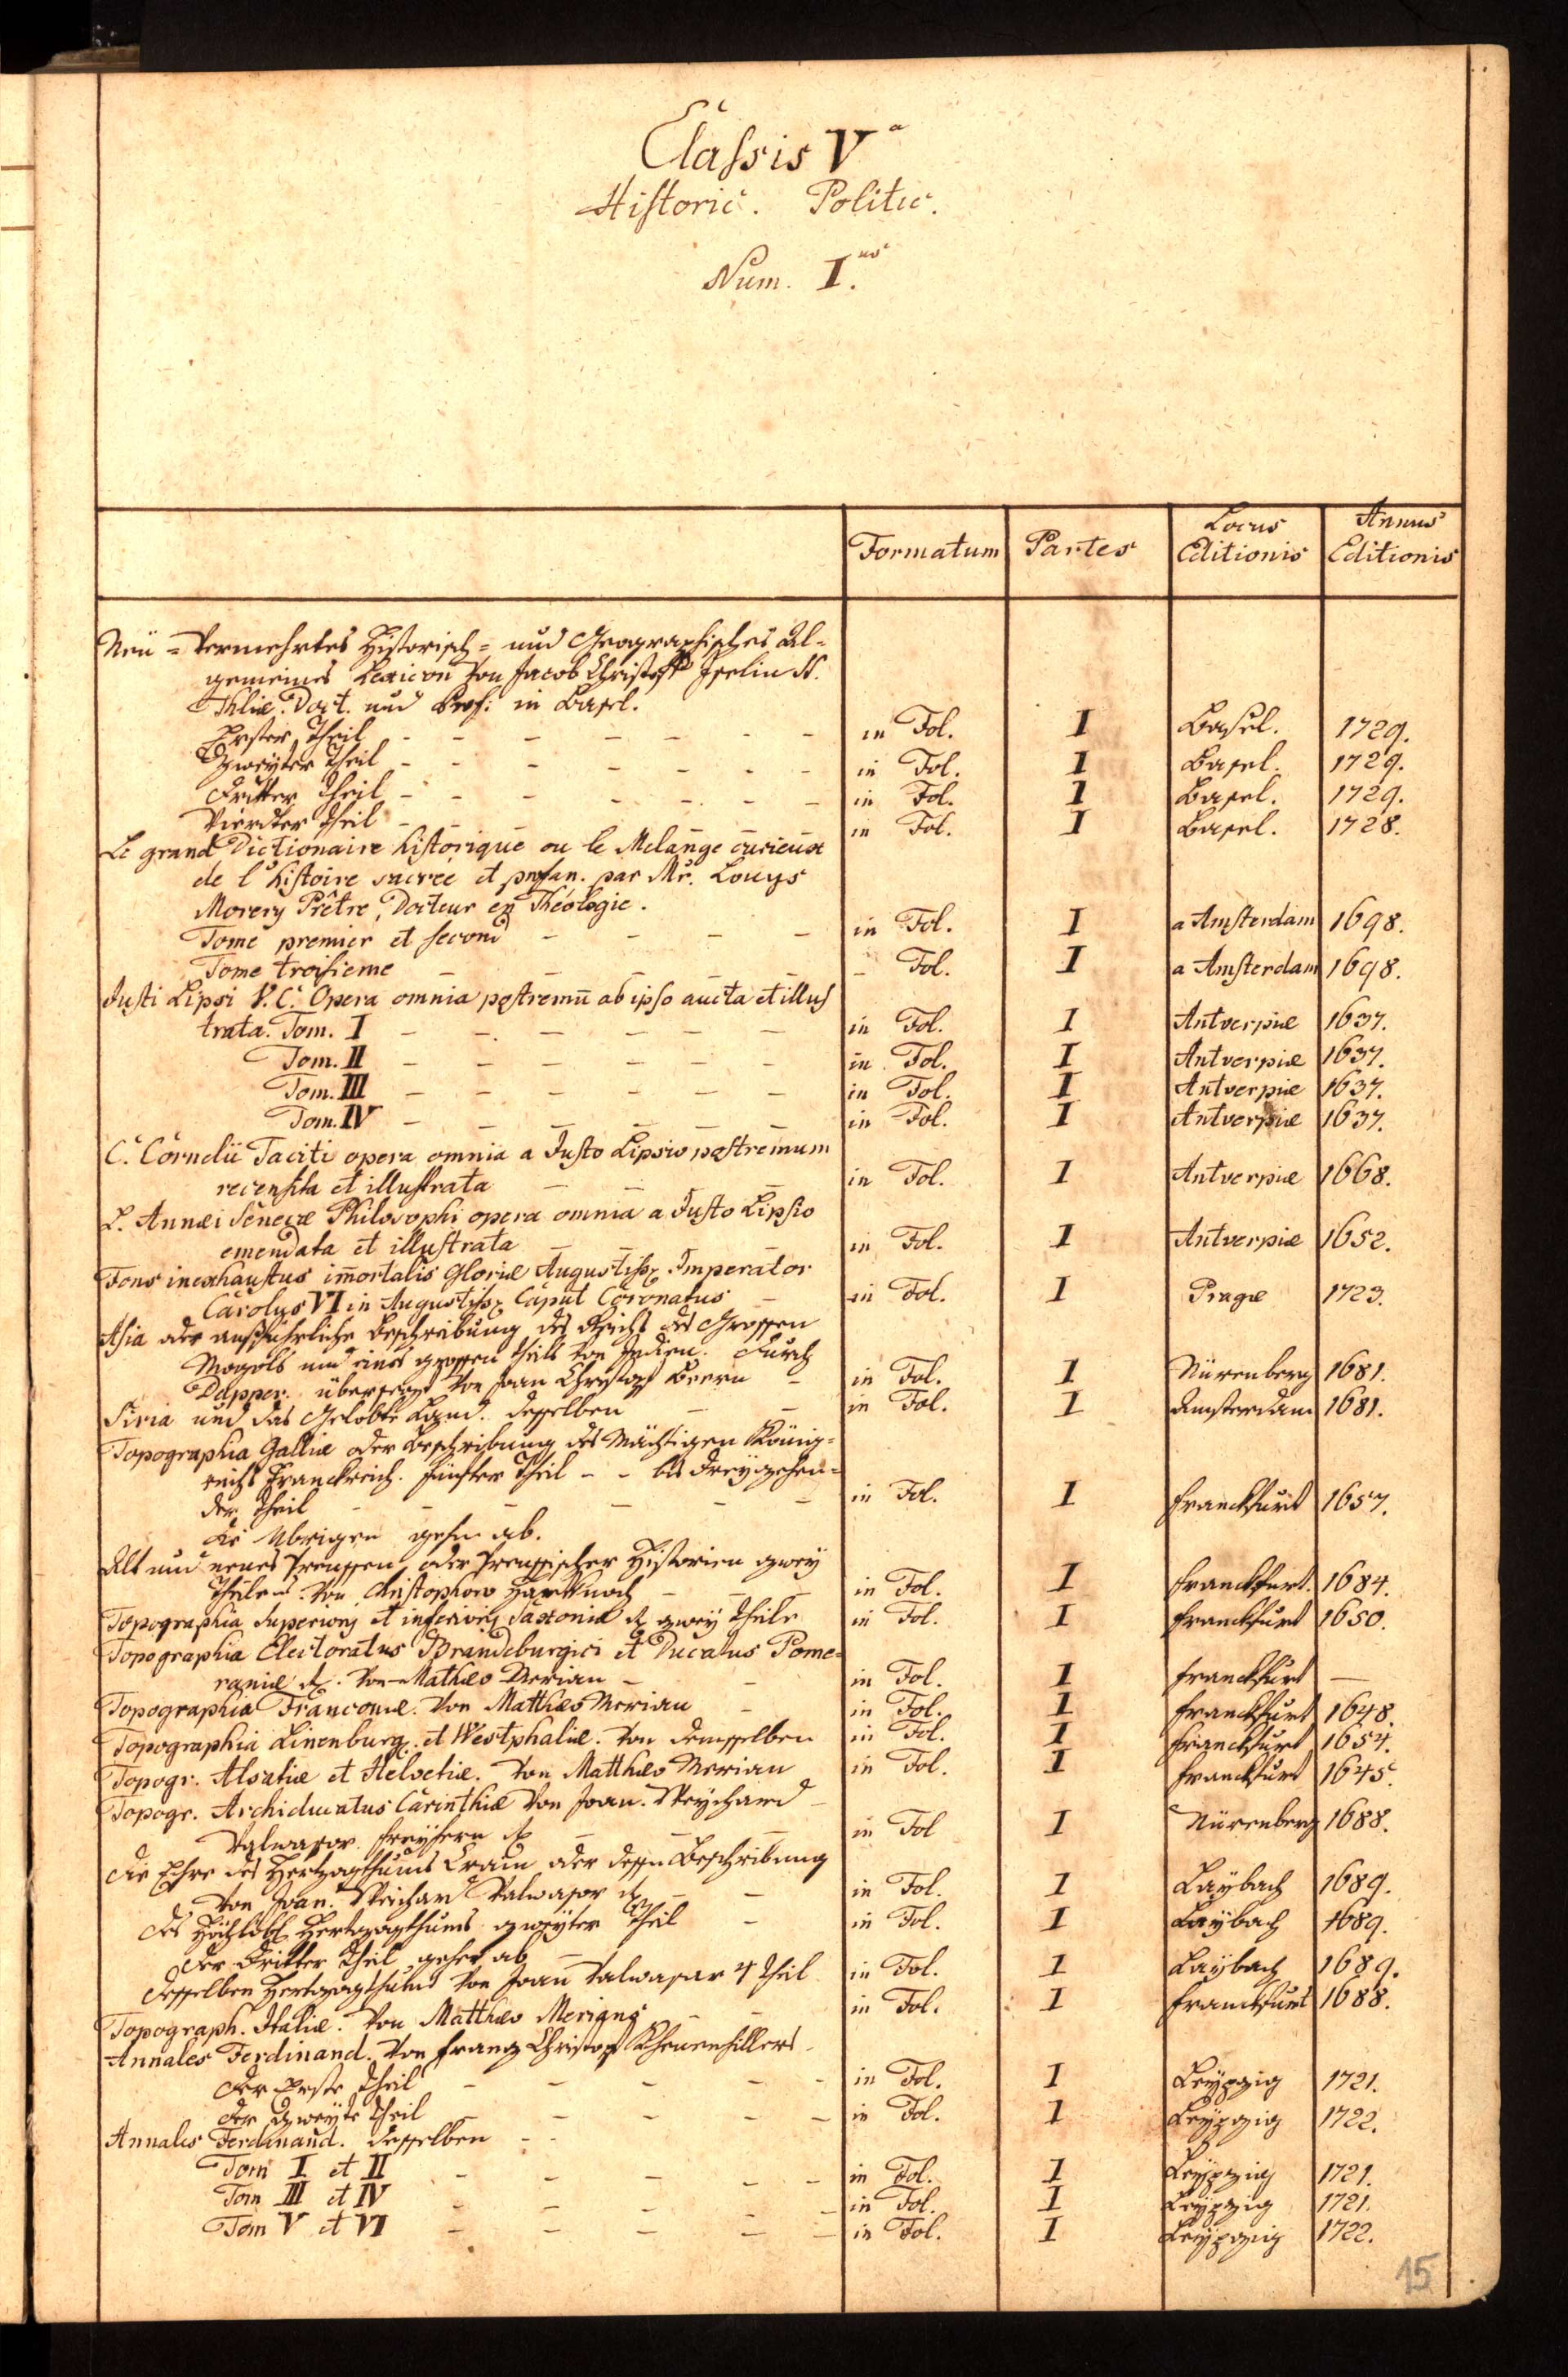 Classis V.a
Historic. Politic.
Num. I.us
Formatum Partes Locus Editionis Annus Editionis
Neü-Vermehrtes Historisch- und Geographisches Al-
gemeines Lexicon Von Jacob Christoff Iselin SS.
Thliæ. Doct. und Prof: in Basel.
Erster Theil - - - - - - - in Fol. I Basel. 1729.
Zweyter Theil - - - - - - - in Fol. I Basel. 1729.
Dritter Theil - - - - - - - in Fol. I Basel. 1729.
Vierdter Theil - - - - - - - in Fol. I Basel. 1728.
Le grand Dictionaire historique ou le Melange curieux
de l'histoire sacreé et profan. par Mr. Louys
Morery Prêtre, Docteur en Théologie.
Tome premier et second - - - - in Fol. I a Amsterdam 1698.
Tome troisieme - - - - - - Fol. I a Amsterdam 1698.
Justi Lipsi V.C. Opera omnia postremū ab ipso aucta et illus
trata. Tom. I - - - - - - in Fol. I Antverpiæ 1637.
Tom. II - - - - - - in Fol. I Antverpiæ 1637.
Tom. III - - - - - - in Fol. I Antverpiæ 1637.
Tom. IV - - - - - - in Fol. I Antverpiæ 1637.
C. Cornelii Taciti opera omnia a Justo Lipsio postremum
recensita et illustrata - - - - in Fol. I Antverpiæ 1668.
L. Annæi Senecæ Philosophi opera omnia a Justo Lipsio
emendata et illustrata - - - - in Fol. I Antverpiæ 1652.
Fons inexhaustus im̄ortalis Gloriæ Augustiss. Imperator
Carolus VI in Augustiss. Caput Coronatus - in Fol. I Pragæ 1723.
Asia oder außführliche Beschreibung des Reichs des Grossen
Mogols und eines grossen theils von Indien. Durch
Dapper. übersezt Von Joan Christoph Beern - in Fol. I Nürenberg 1681.
Siria und das Gelobte Land. desselben - - in Fol. I Amsterdam 1681.
Topographia Galliæ oder Beschreibung des Mächtigen König-
reichs Franckreich. Fünfter Theil - - bis dreyzehen-
der Theil - - - - - - in Fol. I Franckfurt 1657.
die Ubrigen gehen ab.
Alt und neues Preussen oder Preussischer Historien zwey
Theile. Von Christophoro Hartknoch - - - in Fol. I Franckfurt. 1684.
Topographia Superioris et inferioris Saxoniæ zwey Theile in Fol. I Franckfurt 1650.
Topographia Electoratus Brandeburgici et Ducatus Pome-
raniæ Von Mathæo Merian - - in Fol. I Franckfurt -
Topographia Franconiæ. Von Matthæo Merian - in Fol. I Franckfurt 1648.
Topographia Linenburg. et Westphaliæ. Von demselben in Fol. I Franckfurt 1654.
Topogr. Alsatiæ et Helvetiæ. Von Matthæo Merian in Fol. I Franckfurt 1645.
Topogr. Archiducatus Carinthiæ Von Joan. Weychard -
Valvasor freyhern - - - in Fol I Nürenberg 1688.
Die Ehre des Hertzogthums Crain oder dessen Beschreibung
Von Joan. Weichard Valvasor - - in Fol. I Laybach 1689.
des Hochlöbl Hertzogthums zweyter Theil - in Fol. I Laybach 1689.
der dritter Theil gehet ab
desselben Hertzogthums Von Joan Valvasor 4 Theil in Fol. I Laybach 1689.
Topograph. Italiæ. Von Matthæo Meriano - - in Fol. I Franckfurt 1688.
Annales Ferdinand. Von Franz Christoph Khevenhillers
Der Erste Theil - - - - - in Fol. I Leypzig 1721.
der Zweyte Theil - - - - - in Fol. I Leypzig 1722.
Annales Ferdinand. desselben - -
Tom I et II - - - - - in Fol. I Leypzig 1721.
Tom III et IV - - - - - in Fol. I Leypzig 1721.
Tom V et VI - - - - - in Fol. I Leypzig 1722.
15